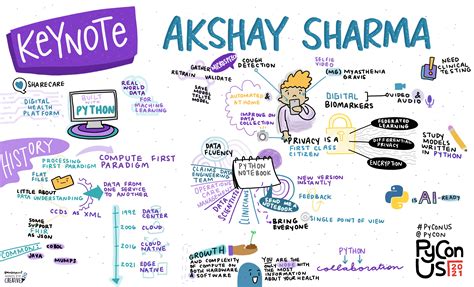 KEYNOTE
AKSHAY SHARMA
SHARECARE
DIGITAL
HEALTH
PLATFORM
BUILT
WITH
PYTHON
REAL
WORLD
DATA
FOR
MACHINE
LEARNING
GATHER
RETRAIN
VALIDATE
SAVE
TFLITE
MODEL
COUGH
DETECTION
AUTOMATED
AT HOME
IMPROVING ON
DATA
COLLECTION
SELFIE
VIDEO
(MG) MYASTHENIA
GRAVIS
DIGITAL
BIOMARKERS
VIDEO &
AUDIO
NEED
CLINICAL
TESTING
PRIVACY is a
FIRST CLASS
CITIZEN
FEDERATED
LEARNING
DIFFERENTIAL
PRIVACY
ENCRYPTION
STUDY
MODELS
WRITTEN in
PYTHON
HISTORY
PROCESSING
FIRST PARADIGM
COMPUTE FIRST
PARADIGM
FLAT
FILES
LITTLE ABOUT
DATA UNDERSTANDING
DATA FROM
ONE SERVICE
TO ANOTHER
CCDS as XML
SOME
SUPPORT
FHIR
as JSON
COMMON:
COBOL
JAVA
MUMPS
1998
DATA
CENTER
2006
CLOUD
2016
CLOUD
NATIVE
2021
EDGE
NATIVE
DATA
FLUENCY
CLAIMS DATA
ENGINEERING
TEAM
OPERATIONS
CARE
MANAGEMENT
DATA
SCIENTISTS
CLINICIANS
PYTHON
NOTEBOOK
SEND ME
NOTEBOOK
NEW VERSION
INSTANTLY
FEEDBACK
BRING
EVERYONE
SINGLE POINT OF VIEW
PYTHON
IS
AI-READY
GROWTH
in COMPLEXITY
of COMPUTE ON
BOTH HARDWARE
SOFTWARE
YOU ARE the
ONLY ONE
WITH the MOST
INFORMATION
ABOUT YOUR HEALTH
PYTHON
collaboration
# PYCONUS
@ PYCON
PyCon
US
2021